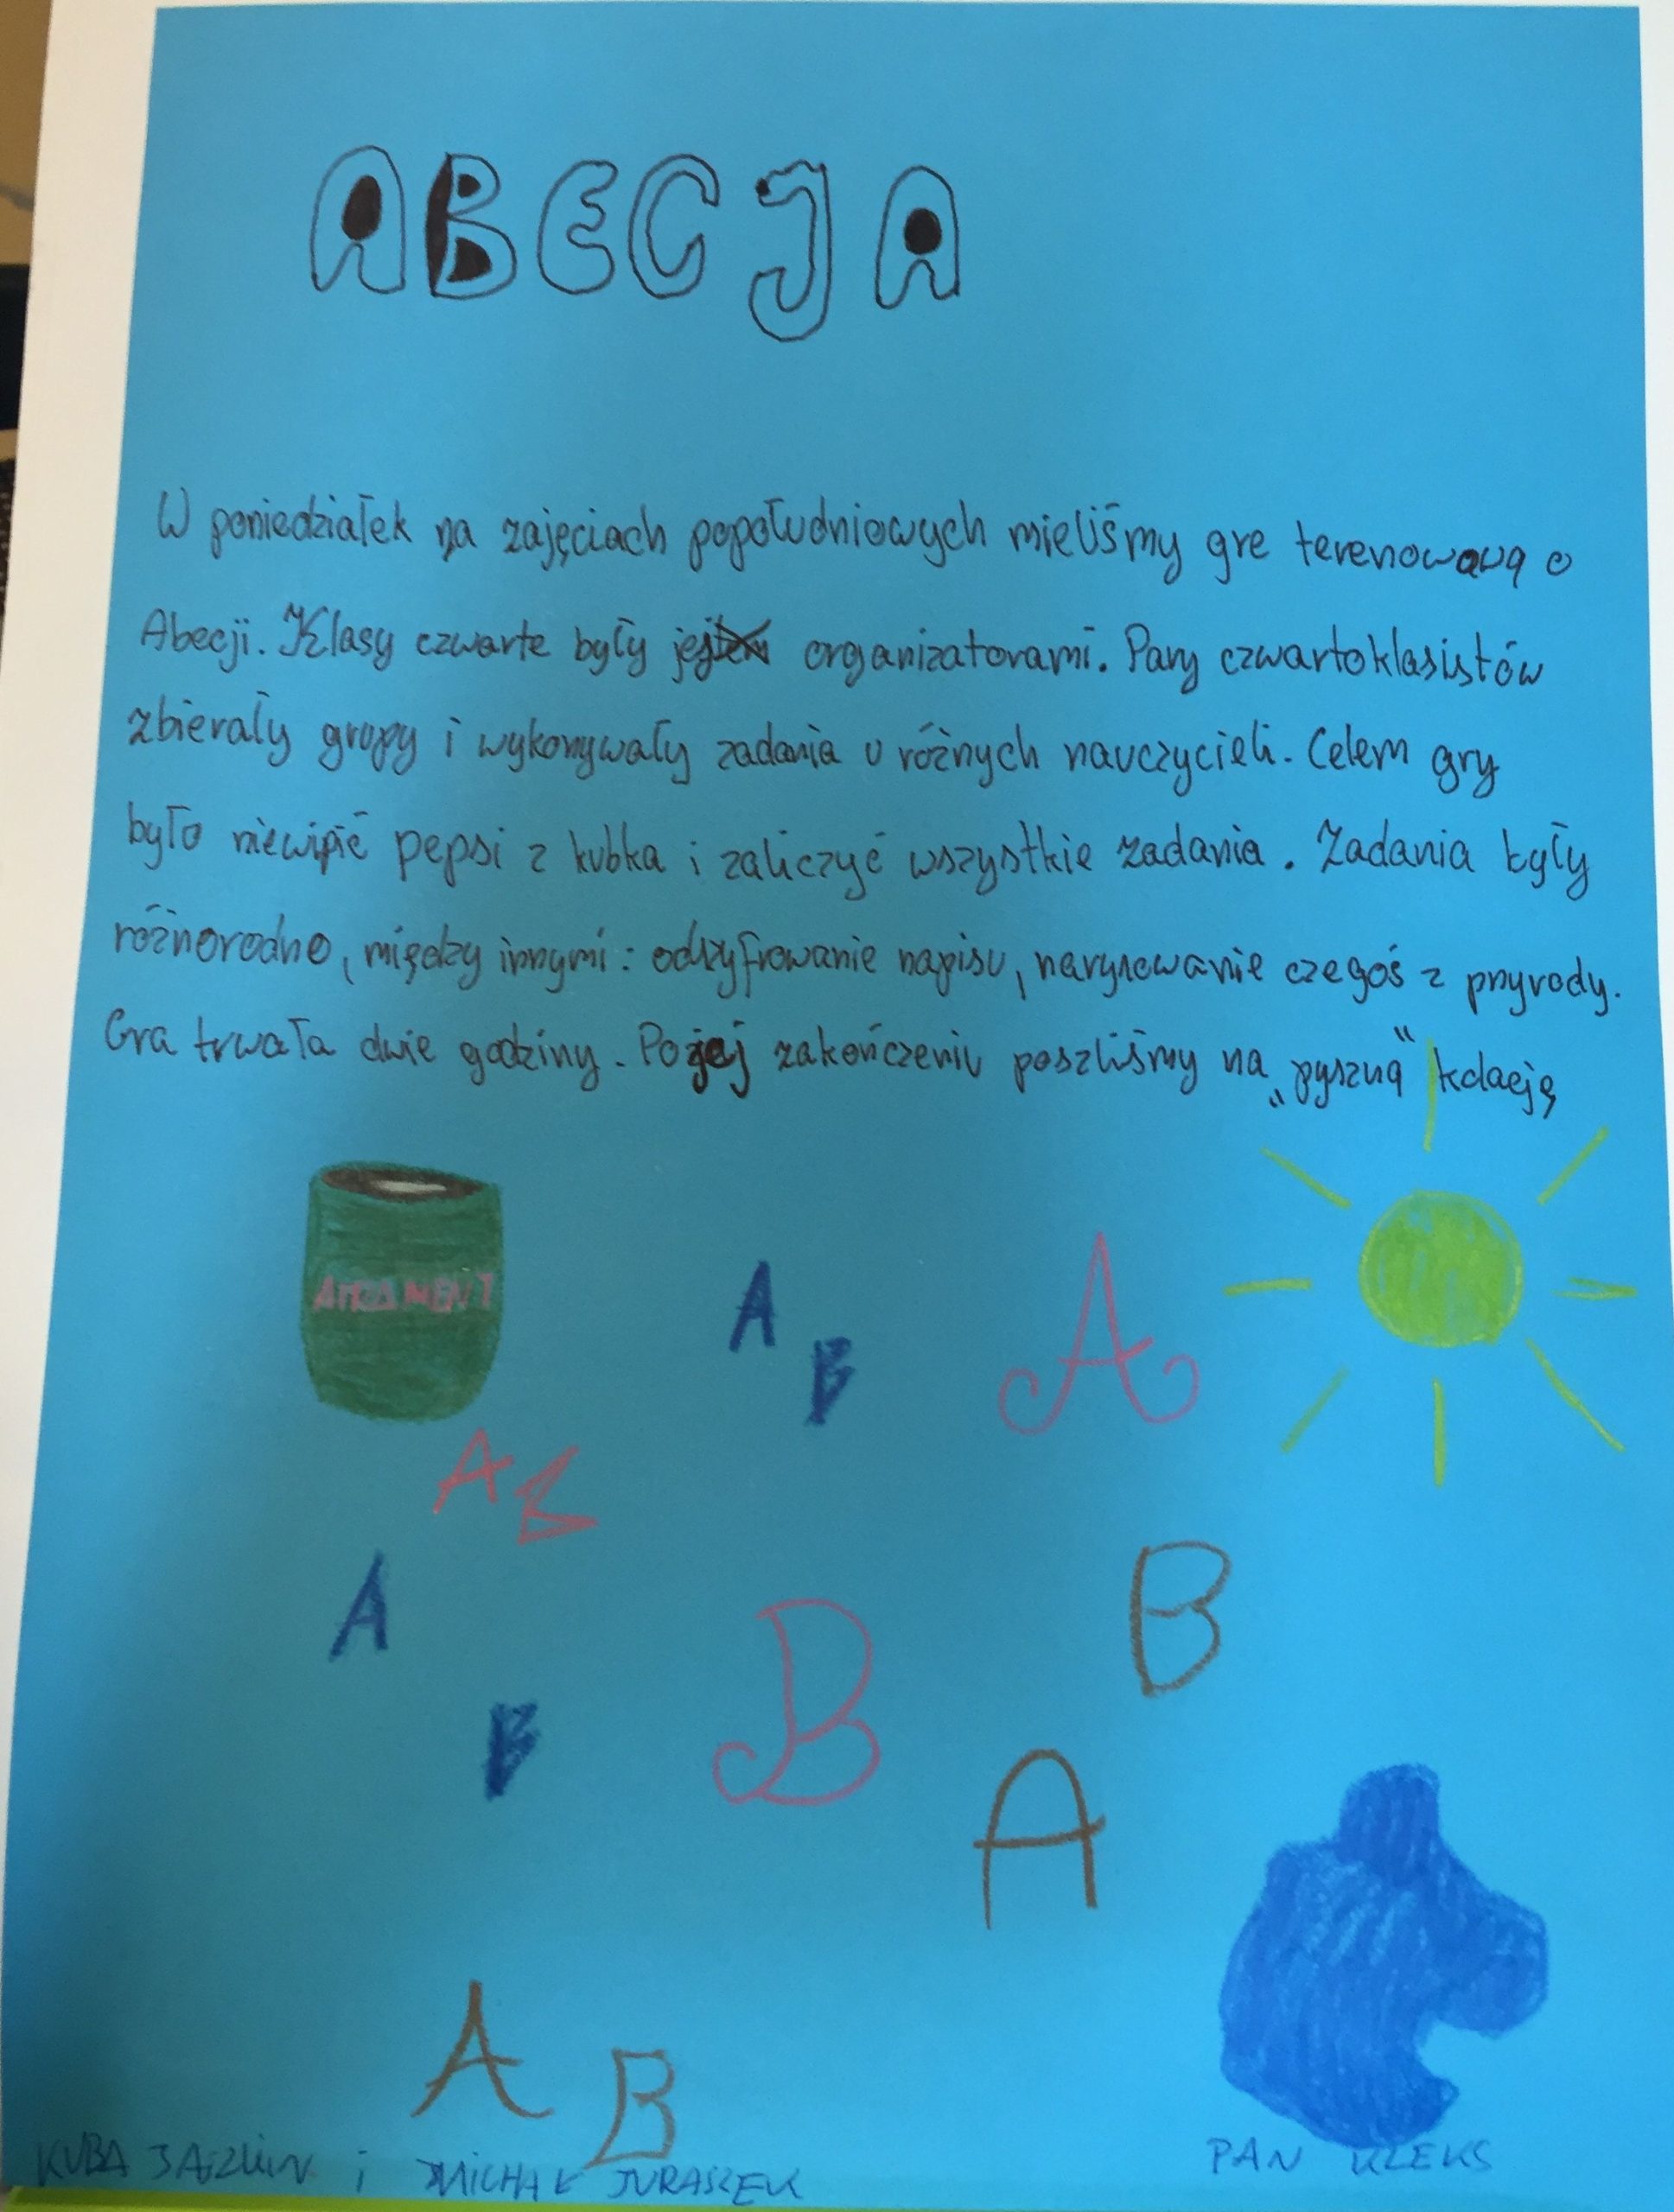 ABECJA
W poniedziałek na zajęciach popołudniowych mieliśmy gre terenową o
Abecji. Klasy czwarte były jej organizatorami. Pary czwartoklasistów
zbierały grupy i wykonywały zadania u różnych nauczycieli. Celem gry
było niewipić pepsi z kubka i zaliczyć wszystkie zadania. Zadania były
różnorodne, między innymi: odszyfrowanie napisu, narysowanie czegoś z przyrody.
Gra trwała dwie godziny. Po jej zakończeniu poszliśmy na „pyszną" kolację
A
B
A
A B
A
B
B
B
A
A B
KUBA i MICHAŁ JURASZEK
PAN KLEKS